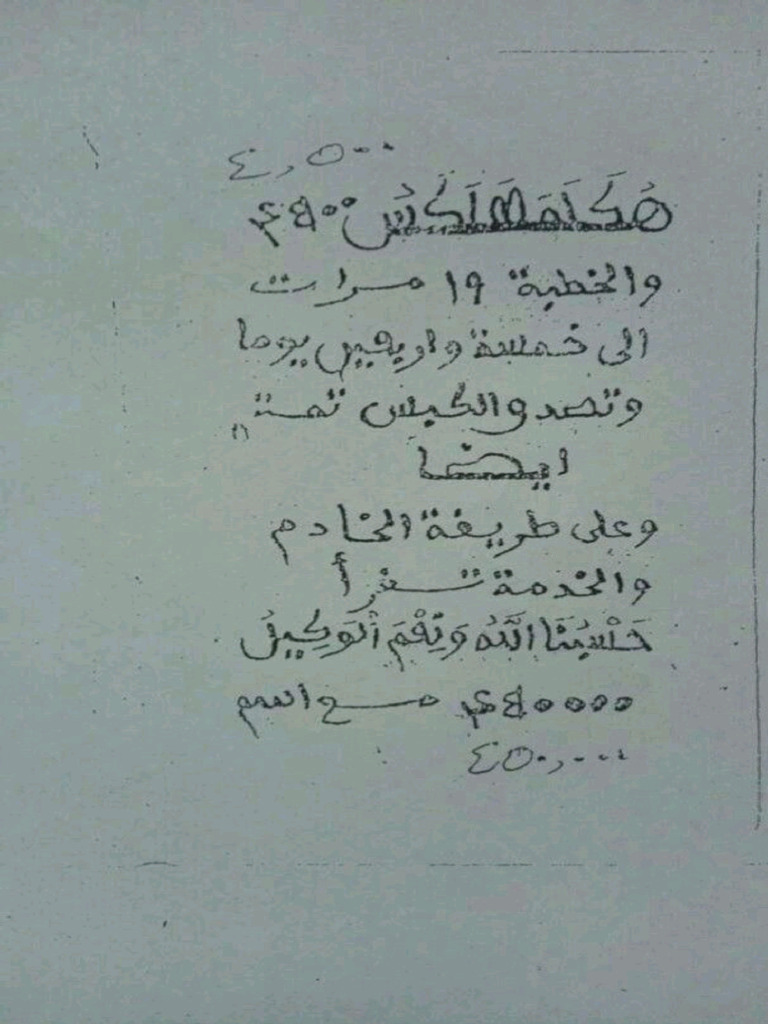 ٤,٥٠٠
٤٥٠٠
والخطبة ١٩ مرات
الى خمسة واربعين يوما
وتصدق الكبش تمت
ايضا
وعلى طريقة الخادم
والخدمة تقرأ
حَسْبُنَا اللَّهُ وَنِعْمَ الْوَكِيلُ
٤٥٠٠٠٠ مع اسم
٤٥٠,٠٠٠